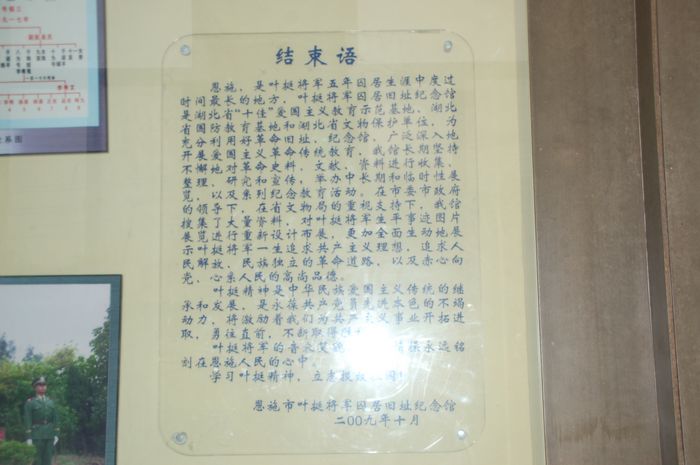 结束语
恩施，是叶挺将军五年囚居生涯中度过
时间最长的地方，叶挺将军囚居旧址纪念馆
是湖北省“十佳”爱国主义教育示范基地、湖北
省国防教育基地和湖北省文物保护单位，为
充分利用好革命旧址、纪念馆，广泛深入地
开展爱国主义革命传统教育，我馆长期坚持
不懈地对革命史料、文献、资料进行收集、
整理、研究和宣传；举办中长期和临时性展
览，以及系列纪念教育活动，在市委市政府
的领导下，在省文物局的重视支持下，我馆
搜集了大量资料，对叶挺将军生平事迹图片
展览进行重新设计布展，更加全面生动地展
示叶挺将军一生追求共产主义理想，追求人
民解放，民族独立的革命道路，以及赤心向
党，心系人民的高尚品德。
叶挺精神是中华民族爱国主义传统的继
承和发展，是永葆共产党员先进本色的不竭
动力，将激励着我们为共产主义事业开拓进
取，勇往直前，不断取得
叶挺将军的音容笑 永远铭
刻在恩施人民的心中。
学习叶挺精神，立志报效 国！
恩施市叶挺将军囚居旧址纪念馆
二00九年十月
系图